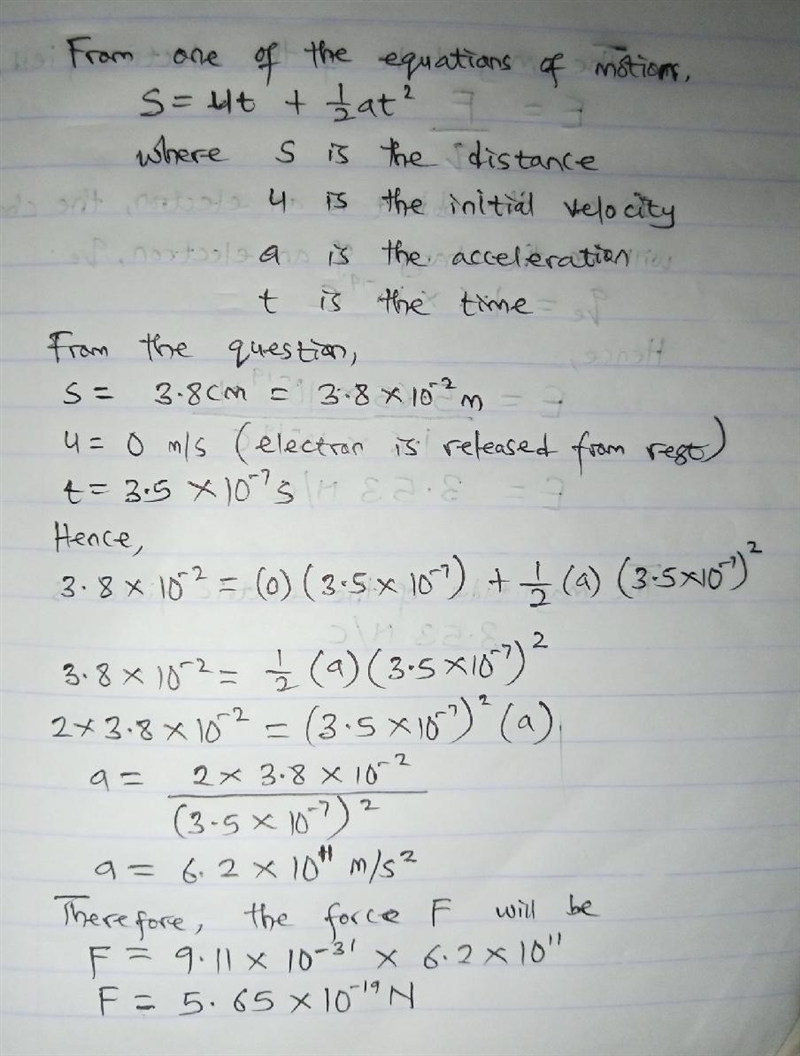 From one of the equations of motion,
S = ut + 1/2 at²
where S is the distance
u is the initial velocity
a is the acceleration
t is the time
From the question,
S = 3.8cm = 3.8 × 10⁻² m
u = 0 m/s (electron is released from rest)
t = 3.5 × 10⁻⁷ s
Hence,
3.8 × 10⁻² = (0)(3.5 × 10⁻⁷) + 1/2 (a) (3.5 × 10⁻⁷)²
3.8 × 10⁻² = 1/2 (a)(3.5 × 10⁻⁷)²
2 × 3.8 × 10⁻² = (3.5 × 10⁻⁷)² (a)
a = 2 × 3.8 × 10⁻²
(3.5 × 10⁻⁷)²
a = 6.2 × 10¹¹ m/s²
Therefore, the force F will be
F = 9.11 × 10⁻³¹ × 6.2 × 10¹¹
F = 5.65 × 10⁻¹⁹ N